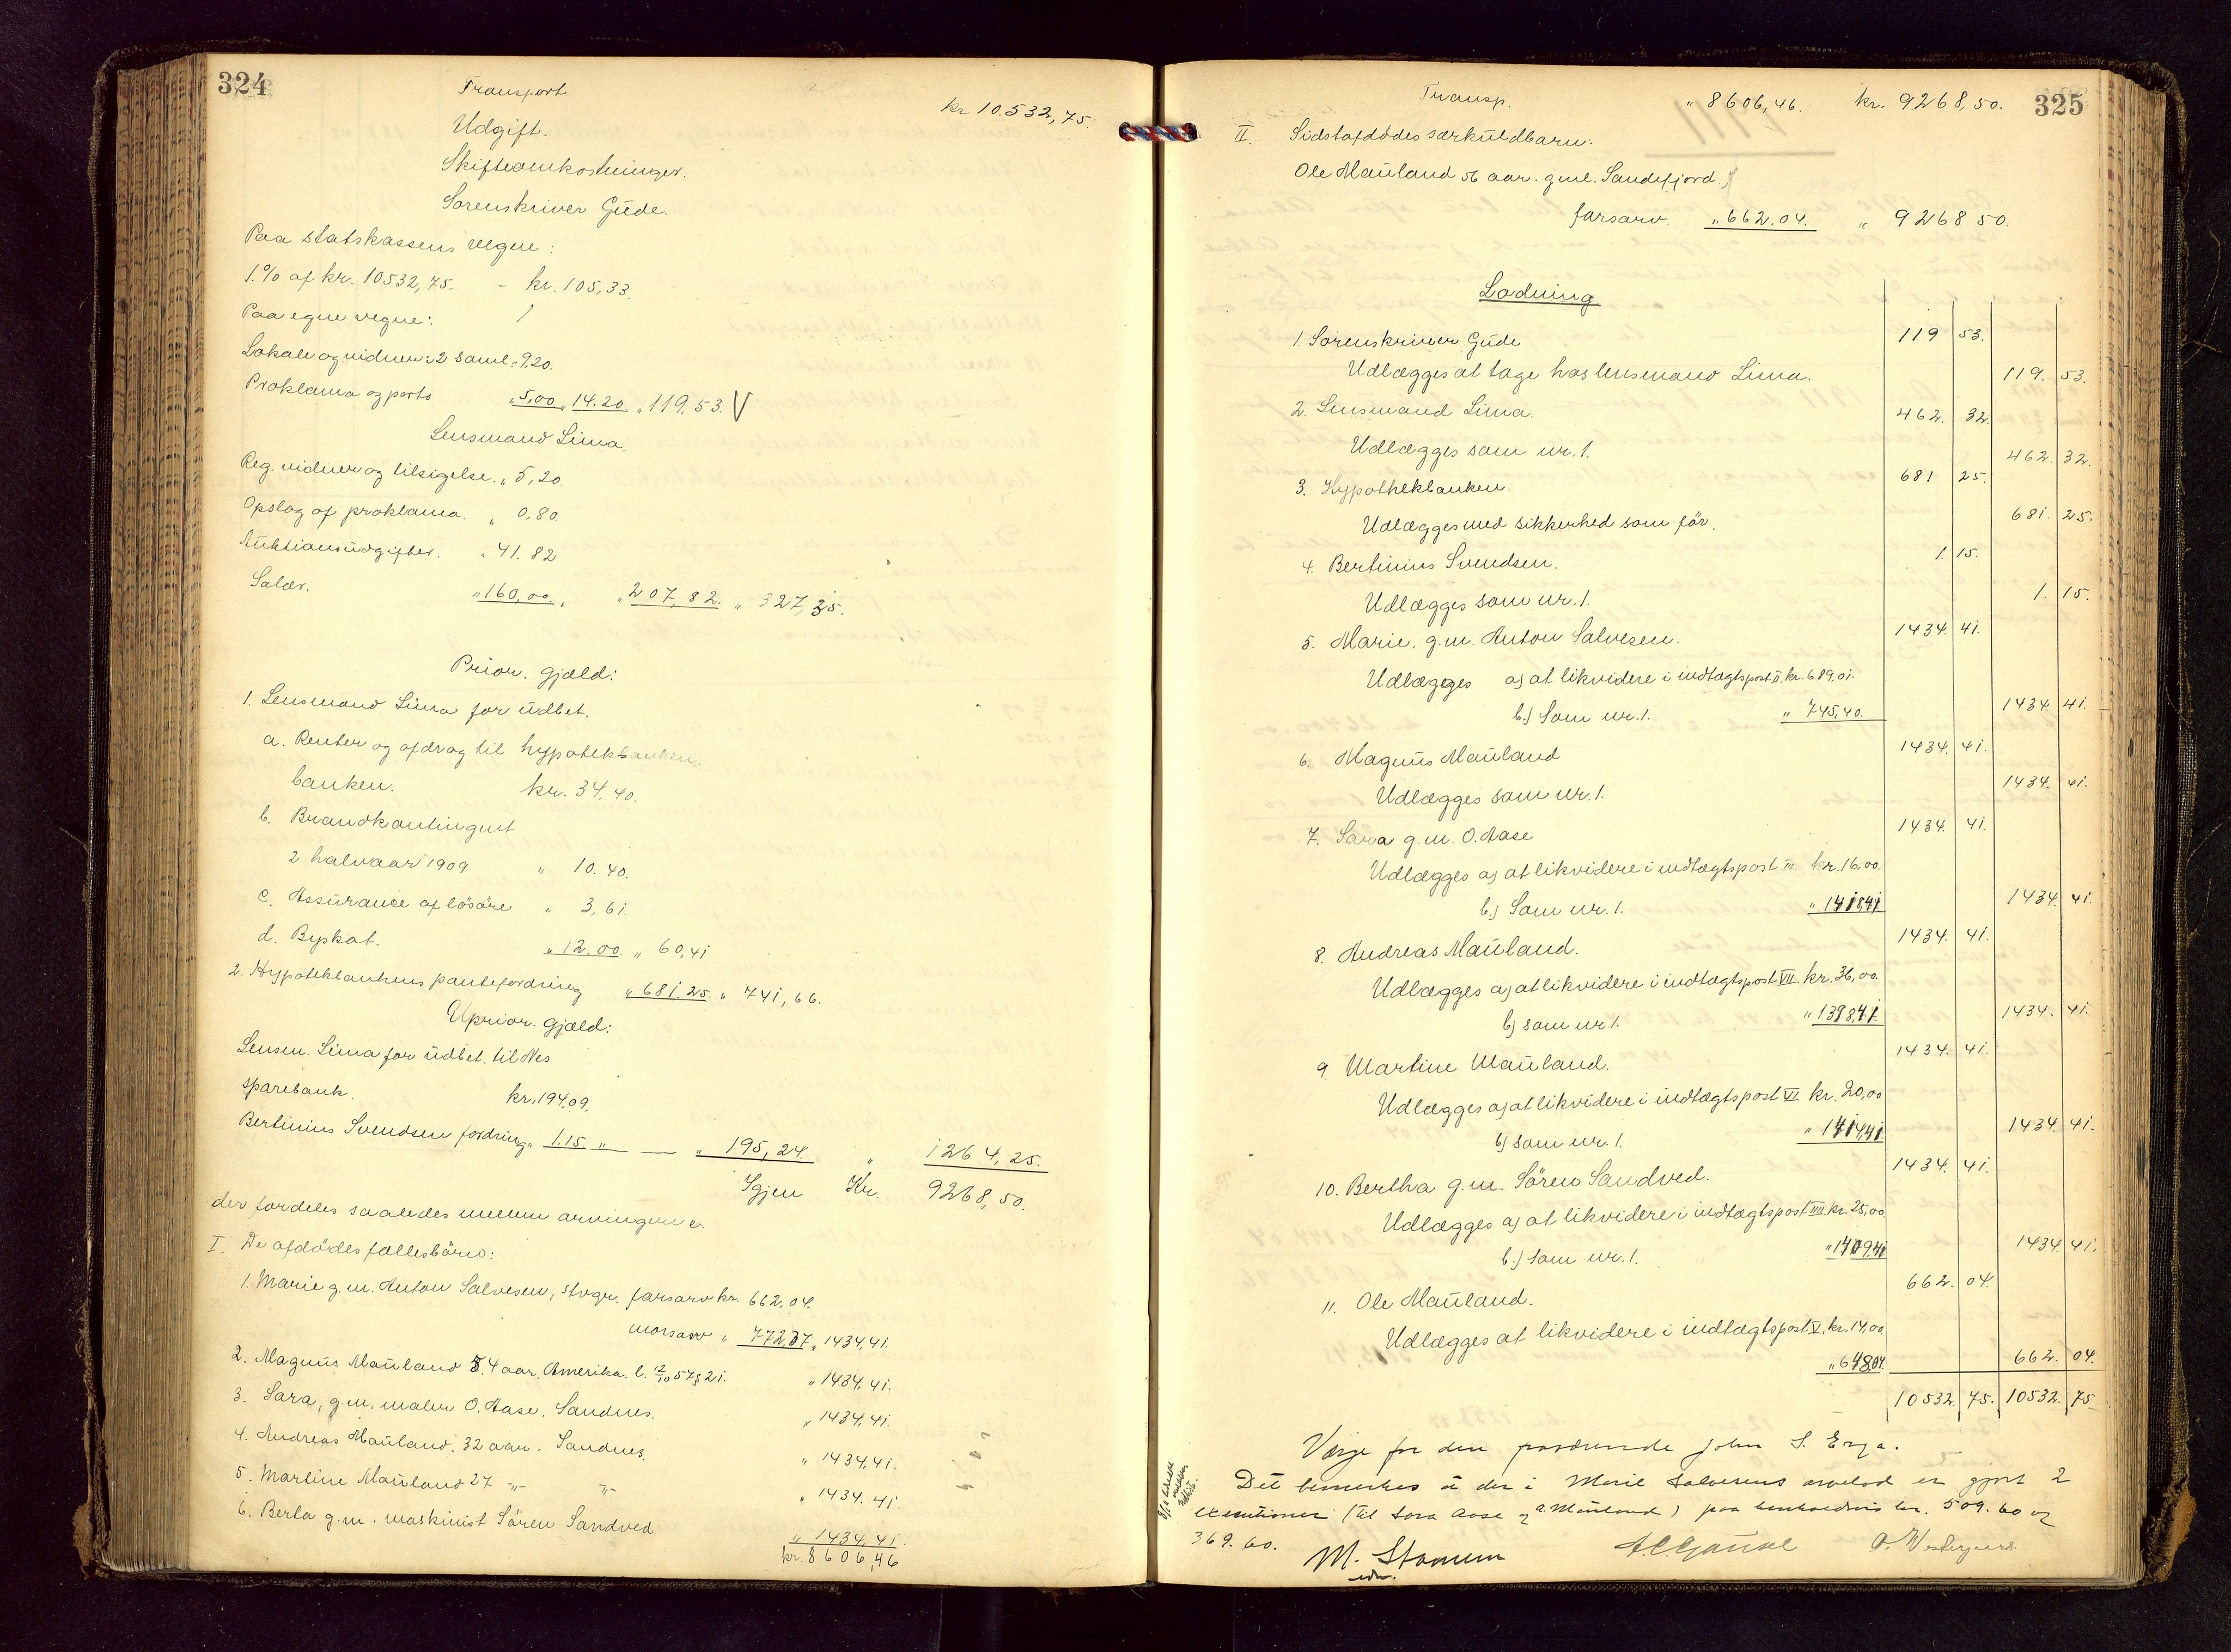 324
Transport
kr 10.532,75.
Udgift.
Skifteomkostninger.
Sorenskriver Gude.
Paa statskassens vegne:
1.% af kr. 10532,75. - kr. 105,33.
Paa egne vegne:
Lokale og vidner i 2 saml. „ 9,20.
Proklama og porto „ 5,00 „ 14.20. „ 119,53. V
Lensmand Lima.
Reg. vidner og tilsigelse. „ 5,20.
Opslag af proklama. „ 0,80
Auktionsudgifter. „ 41.82
Salær. „ 160,00. „ 207,82. „ 327,35.
Prior. gjæld:
1. Lensmand Lima for udbet.
a. Renter og afdrag til hypotekbanken.
banken. kr. 34,40.
b. Brandkontingent
2 halvaar 1909 „ 10.40.
c. Assurance af lösöre „ 3,61.
d. Byskat. „ 12,00. „ 60,41
2. Hypotekbankens pantefordring „ 681.25. „ 741,66.
Uprior. gjæld:
Lensm. Lima for udbet. til Nes
sparebank. kr. 194,09.
Bertinius Svendsen fordring „ 1.15. „ — „ 195,24. „ 1264,25.
Igjen Kr. 9268,50.
der fordeles saaledes mellem arvingerne.
I. De afdödes fællesbörn:
1. Marie g.m. Anton Salvesen, Stvgr. farsarv kr. 662,04.
morsarv „ 772,37 „ 1434,41.
2. Magnus Mauland 54 aar, Amerika. l. 12/10 57 § 21. „ 1434,41.
3. Sara, g.m. maler O. Aase, Sandnes. „ 1434,41.
4. Andreas Mauland. 32 aar. Sandnes. „ 1434,41.
5. Martine Mauland 27 -„- -„- „ 1434.41.
6. Berta g.m. maskinist Sören Sandved „ 1434,41.
kr. 8606,46
325
Transp. „ 8606,46. kr. 9268,50.
II. Sidstafdödes særkuldbarn:
Ole Mauland 56 aar. gml. Sandefjord.
farsarv. „ 662.04. „ 9268 50.
Lodning
1. Sorenskriver Gude 119 53.
Udlægges at tage hos lensmand Lima. 119. 53.
2. Lensmand Lima. 462. 32.
Udlægges som nr. 1. 462. 32.
3. Hypothekbanken. 681 25.
Udlægges med sikkerhed som för. 681. 25.
4. Bertinius Svendsen. 1. 15.
Udlægges som nr. 1. 1. 15.
5. Marie, g.m. Anton Salvesen. 1434. 41.
Udlægges a) at likvidere i indtægtspost II. kr. 689,01.
b.) Som nr. 1. „ 745,40. 1434. 41.
6. Magnus Mauland 1434. 41.
Udlægges som nr. 1. 1434. 41.
7. Sara g.m. O. Aase 1434. 41.
Udlægges a) at likvidere i indtægtspost III. kr. 16,00.
b.) Som nr. 1. „ 1418,41 1434. 41.
8. Andreas Mauland. 1434. 41.
Udlægges a) at likvidere i indtægtspost VII. kr. 36,00.
b) som nr. 1. „ 1398,41. 1434. 41.
9. Martine Mauland. 1434. 41.
Udlægges a) at likvidere i indtægtspost VI. kr. 20,00
b) som nr. 1. „ 1414,41. 1434. 41.
10. Bertha g.m. Sören Sandved. 1434. 41.
Udlægges a) at likvidere i indtægtspost IIII. kr. 25,00
b.) som nr. 1. „ 1409,41 1434. 41.
11. Ole Mauland. 662. 04.
Udlægges at likvidere i indtægtspost V. kr. 14,00
„ 648,04. 662. 04.
10532. 75. 10532. 75
Verge for den fraværende John S. Erga.
Det bemerkes at der i Marie Salvesens arvelod er gjort 2
exekutioner (til Sara Aase og A. Mauland) paa henholdsvis kr. 509.60 og
369.60.
A.C. Gausel
O. Westergaard.